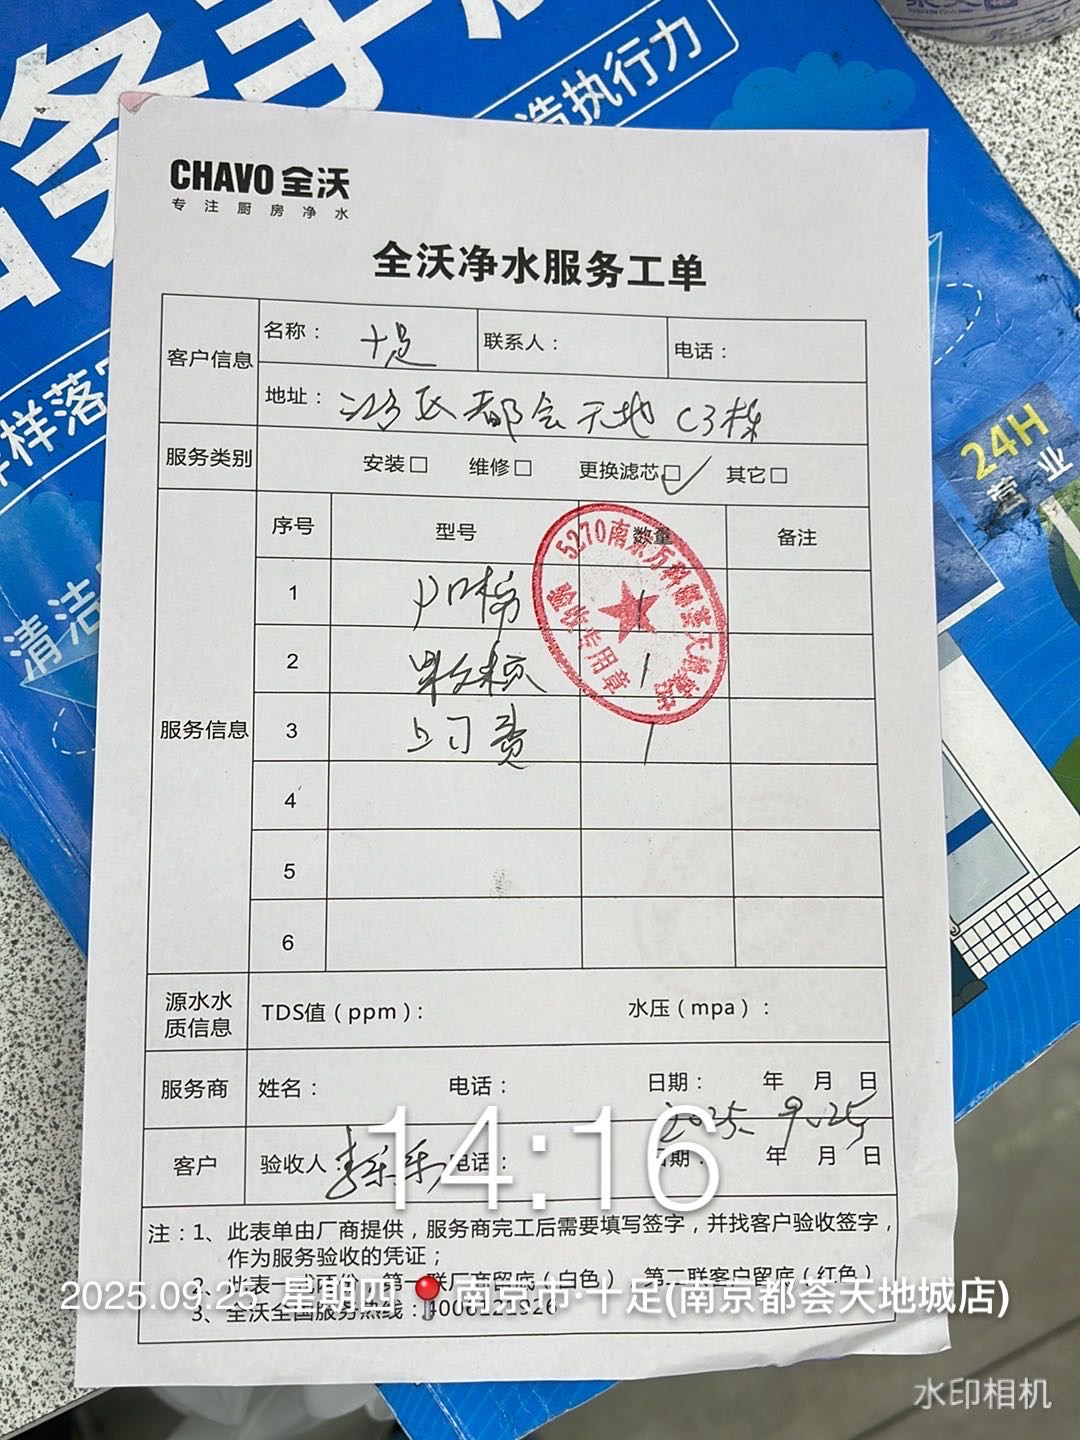 造执行力
24H
营业
清洁
CHAVO 全沃
专注厨房净水
全沃净水服务工单
客户信息
名称：十足
联系人：
电话：
地址：江宁区都会天地C3栋
服务类别
安装□ 维修□ 更换滤芯□✓ 其它□
服务信息
序号 型号 数量 备注
1 1
2 1
3 上门费 1
4
5
6
5270南京万科都荟天地城店
验收专用章
源水水质信息
TDS值（ppm）： 水压（mpa）：
服务商
姓名： 电话： 日期： 年 月 日
2025.9.25
客户
验收人： 电话： 日期： 年 月 日
14:16
注：1、此表单由厂商提供，服务商完工后需要填写签字，并找客户验收签字，
作为服务验收的凭证；
2、此表一式两份，第一联厂商留底（白色） 第二联客户留底（红色）
3、全沃全国服务热线：4000121926
2025.09.25 星期四 南京市·十足(南京都荟天地城店)
水印相机